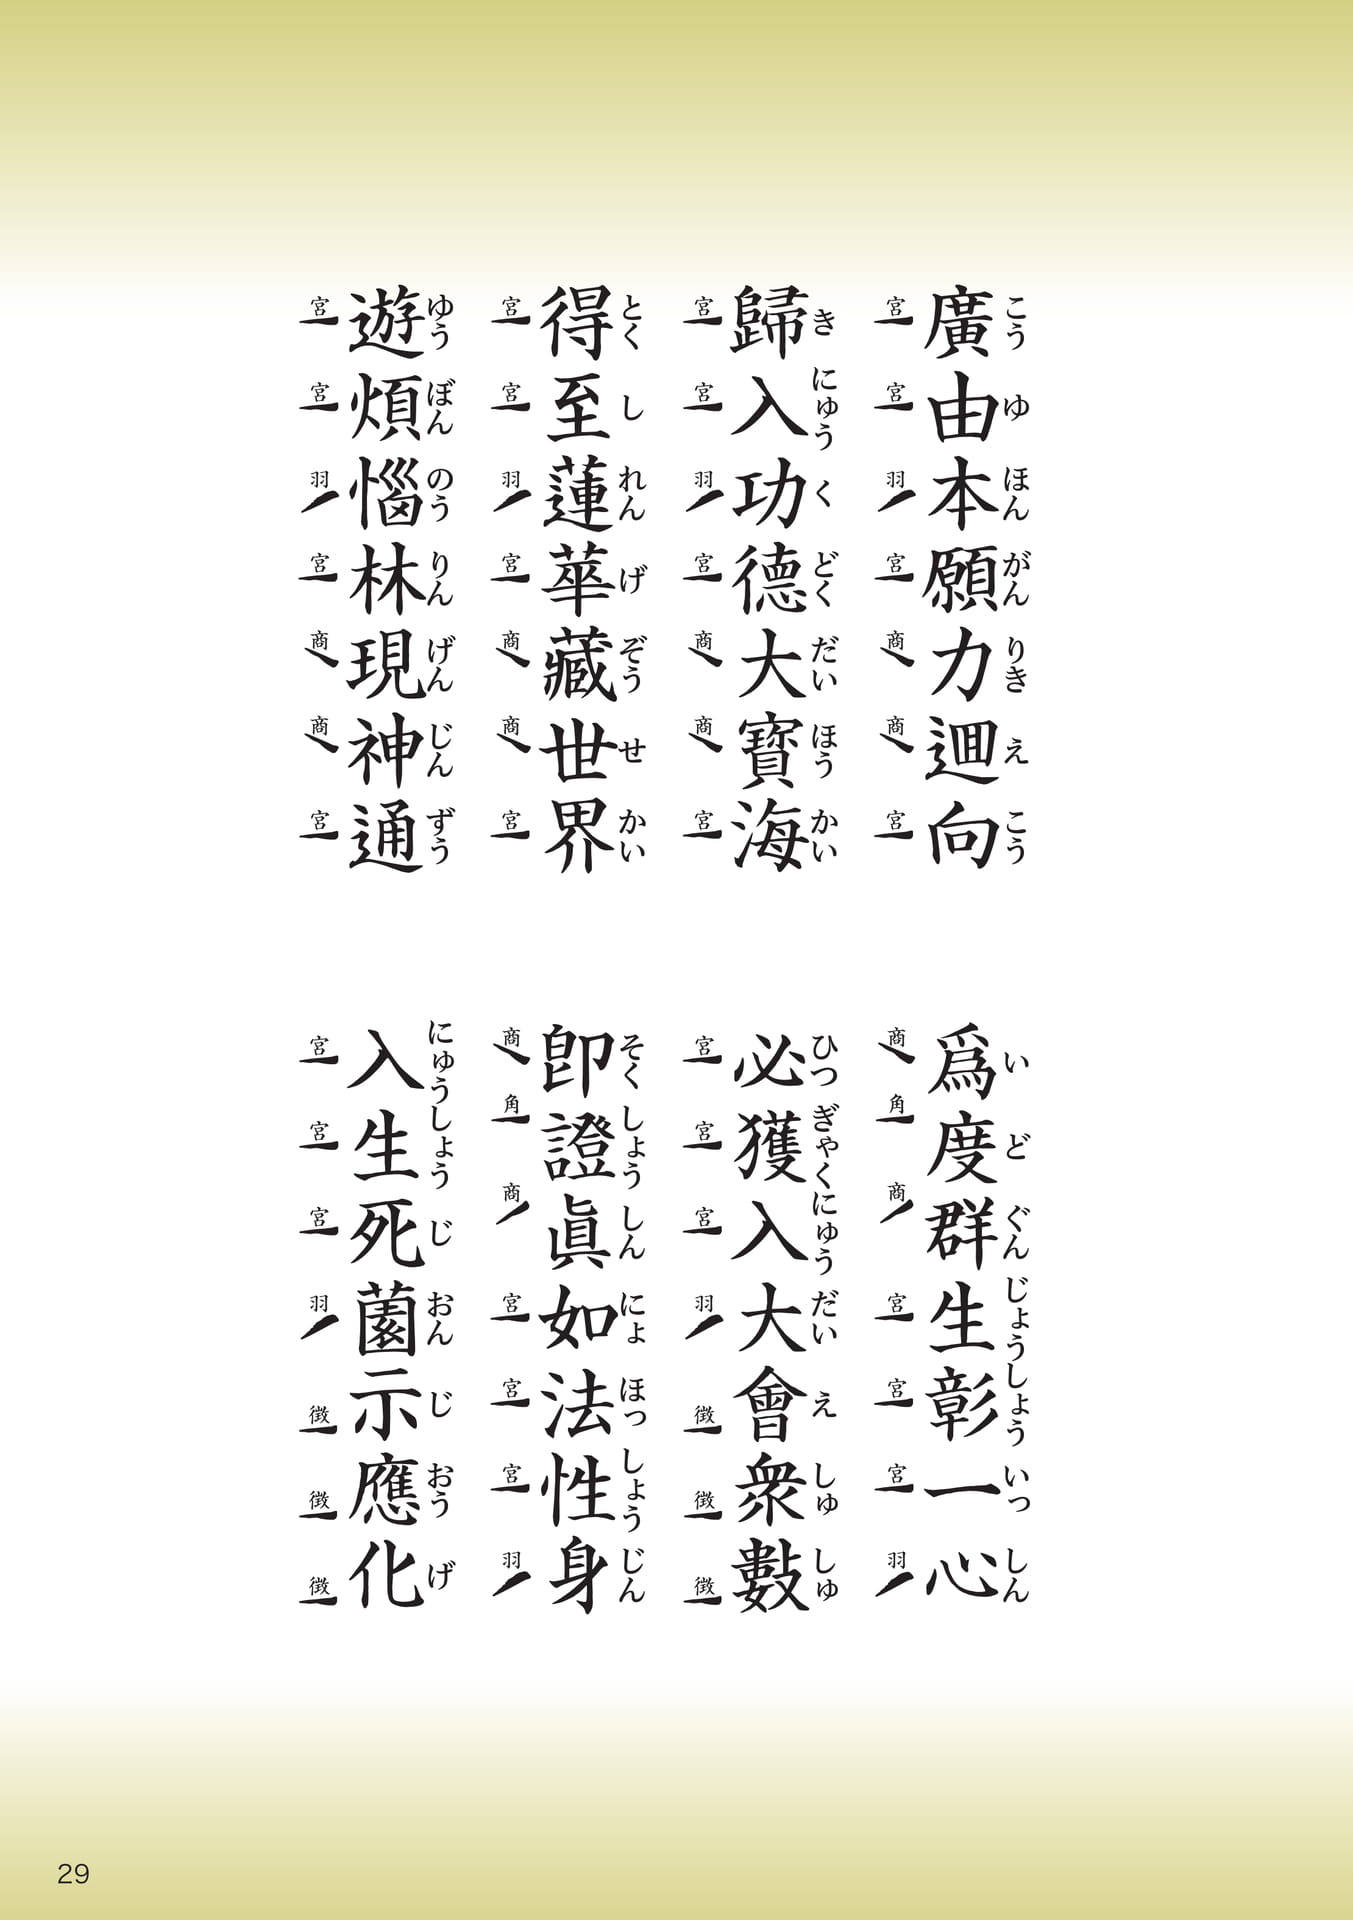 廣由本願力迴向
こう ゆ ほん がん りき え こう
宮 宮 羽 宮 商 商 宮
爲度群生彰一心
い ど ぐん じょう しょう いっ しん
商 角 商 宮 宮 宮 羽
歸入功德大寶海
き にゅう く どく だい ほう かい
宮 宮 羽 宮 商 商 宮
必獲入大會衆數
ひつ ぎゃく にゅう だい え しゅ しゅ
宮 宮 宮 羽 徴 徴 徴
得至蓮華藏世界
とく し れん げ ぞう せ かい
宮 宮 羽 宮 商 商 宮
卽證眞如法性身
そく しょう しん にょ ほっ しょう じん
商 角 商 宮 宮 宮 羽
遊煩惱林現神通
ゆう ぼん のう りん げん じん ずう
宮 宮 羽 宮 商 商 宮
入生死薗示應化
にゅう しょう じ おん じ おう げ
宮 宮 宮 羽 徴 徴 徴
29